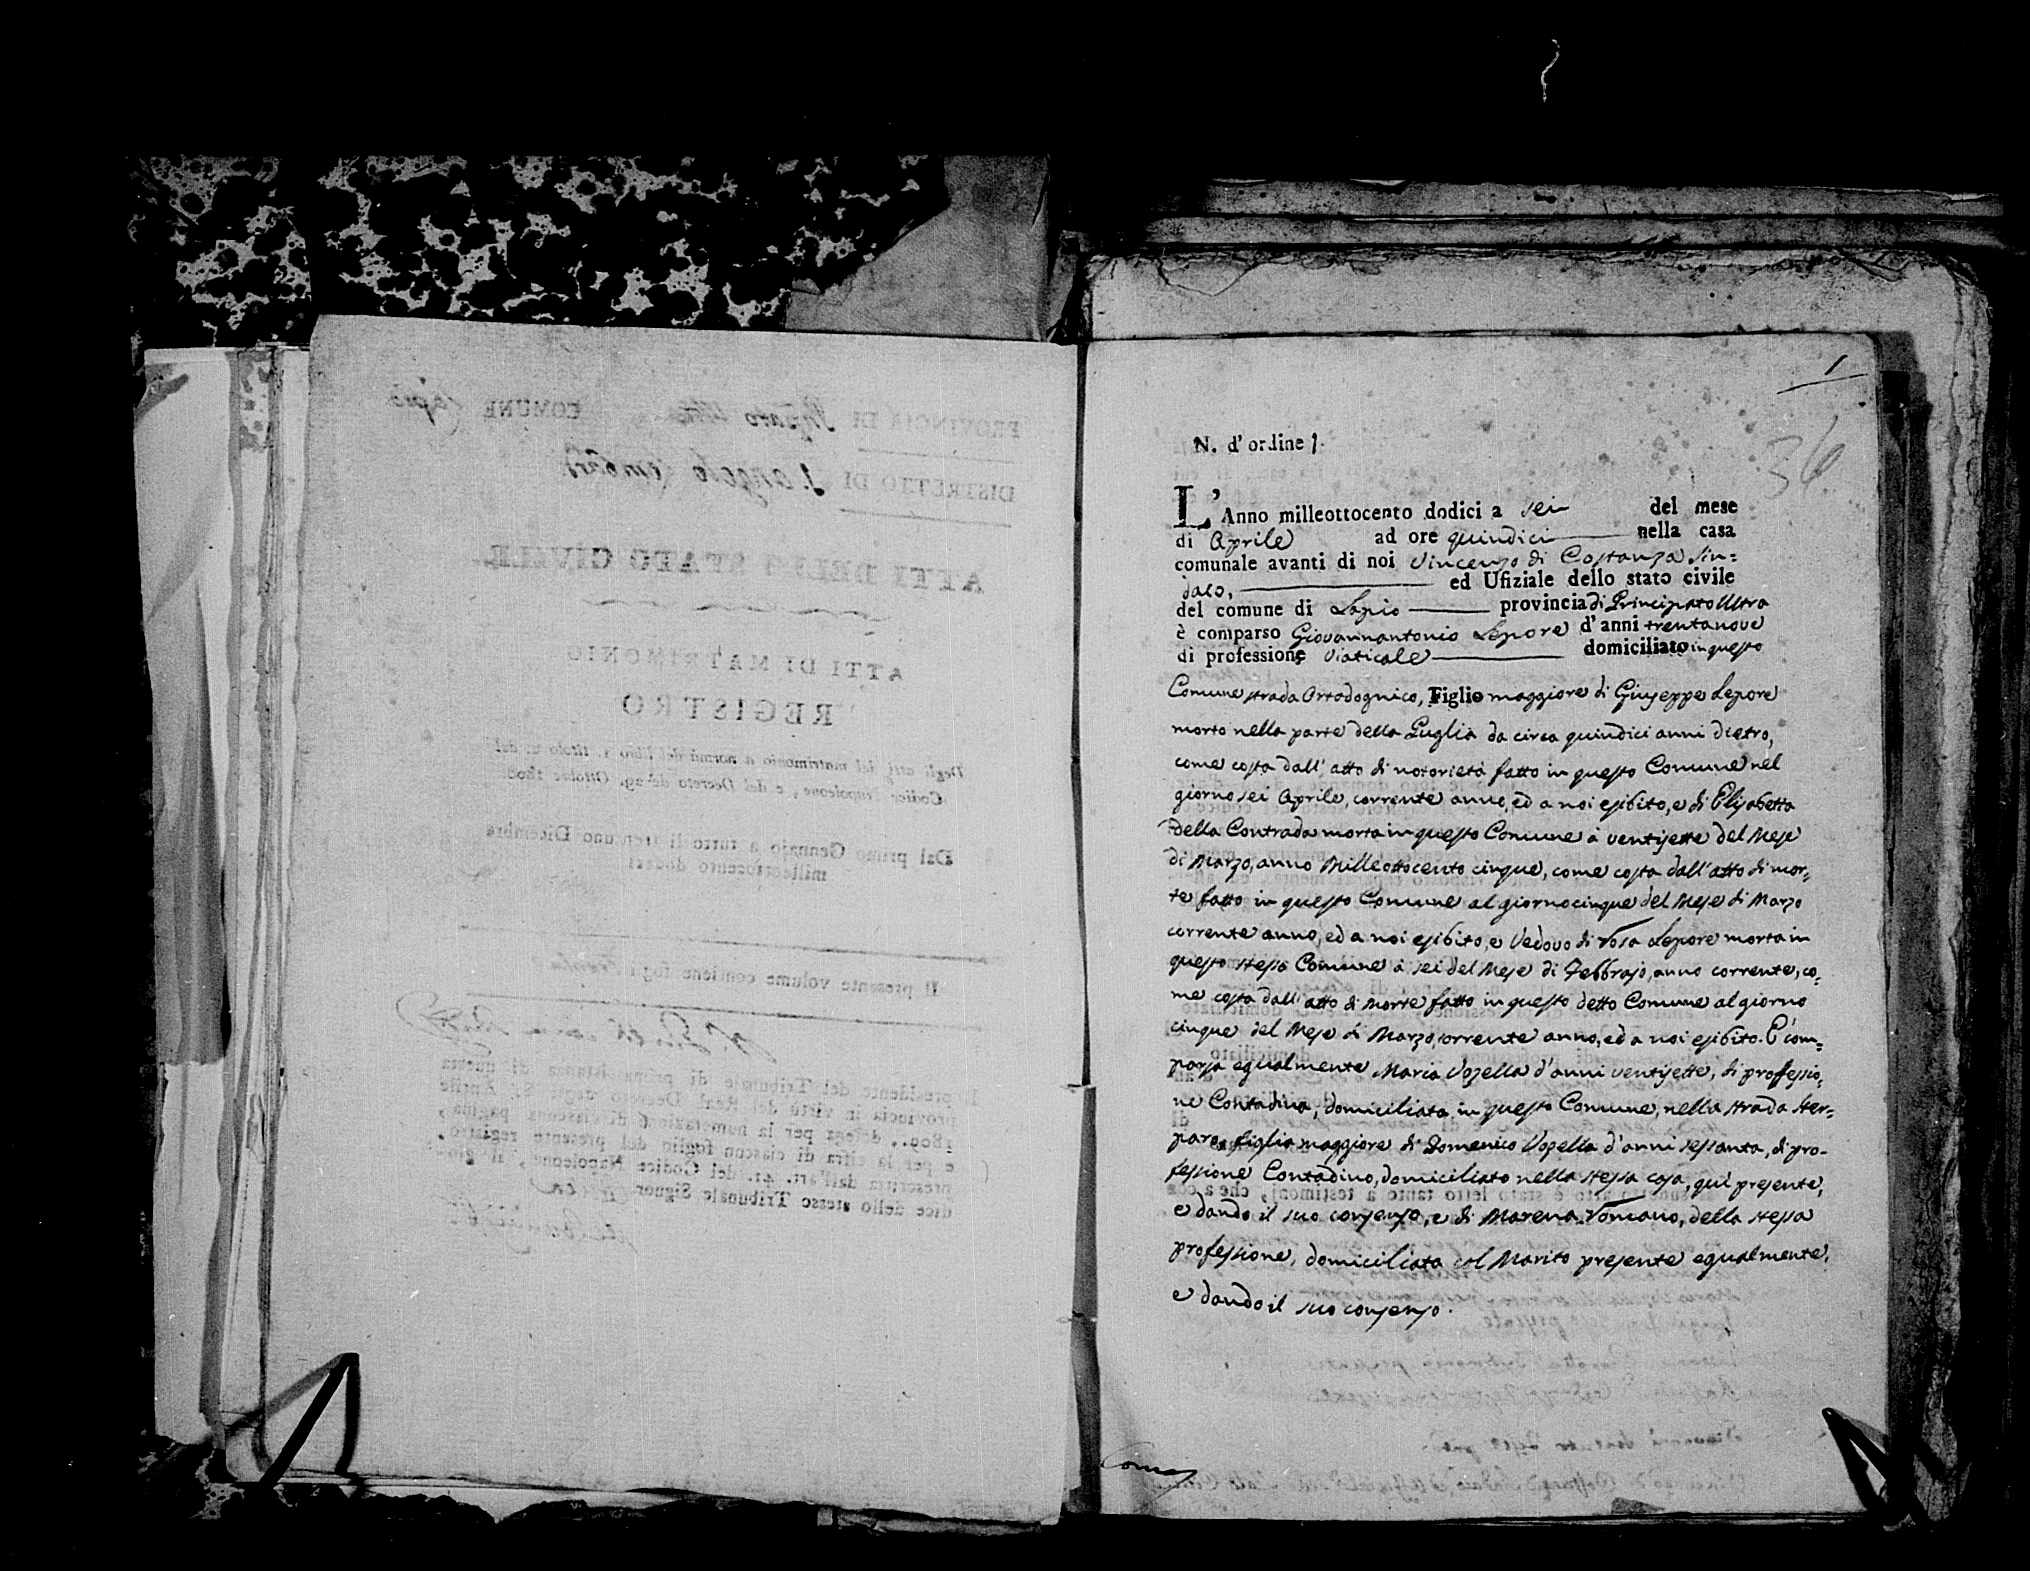 1
36
N. d'ordine 1.
L'Anno milleottocento dodici a sei del mese
di Aprile ad ore quindici nella casa
comunale avanti di noi Vincenzo di Costanza Sin=
daco, ed Ufiziale dello stato civile
del comune di Lapio provincia di Principato Ultra
è comparso Giovannantonio Lepore d'anni trentanove
di professione Viaticale domiciliato in questo
Comune strada Ortodognico, Figlio maggiore di Giuseppe Lepore
morto nella parte della Puglia da circa quindici anni dietro,
come costa dall'atto di notorietà fatto in questo Comune nel
giorno sei Aprile, corrente anno, ed a noi esibito, e di Elisabetta
della Contrada morta in questo Comune à ventisette del Mese
di Marzo, anno Milleottocento cinque, come costa dall'atto di mor=
te fatto in questo Comune al giorno cinque del Mese di Marzo
corrente anno, ed a noi esibito, e Vedovo di Rosa Lepore morta in
questo stesso Comune à sei del Mese di Febbrajo, anno corrente, co=
me costa dall'atto di Morte fatto in questo detto Comune al giorno
cinque del Mese di Marzo, corrente anno, ed a noi esibito. E' com=
parsa egualmente Maria Vozella d'anni ventisette, di professio=
ne Contadina, domiciliata in questo Comune, nella strada Ster=
paro, figlia maggiore di Domenico Vozella d'anni sessanta, di pro=
fessione Contadino, domiciliato nella stessa casa, quì presente,
e dando il suo consenso, e di Marena Romano, della stessa
professione, domiciliata col Marito presente egualmente,
e dando il suo consenso.
PROVINCIA DI COMUNE Lapio
DISTRETTO DI S. Angelo Lombardi
ATTI DELLO STATO CIVILE
ATTI DI MATRIMONIO
REGISTRO
Degli atti del matrimonio a norma del libro 1. titolo 2. del
Codice Napoleone, e del Decreto de' 29. Ottobre 1808.
Dal primo Gennajo a tutto li trentuno Dicembre
milleottocento dodici
Il presente volume contiene fogli trenta
Il presidente del Tribunale di prima istanza di questa
provincia in virtù del Real Decreto degli Aprile
1809., delega per la numerazione di ciascuna pagina,
e per la cifra di ciascun foglio del presente registro,
prescritta dall'art. 41. del Codice Napoleone, il giu-
dice dello stesso Tribunale Signor